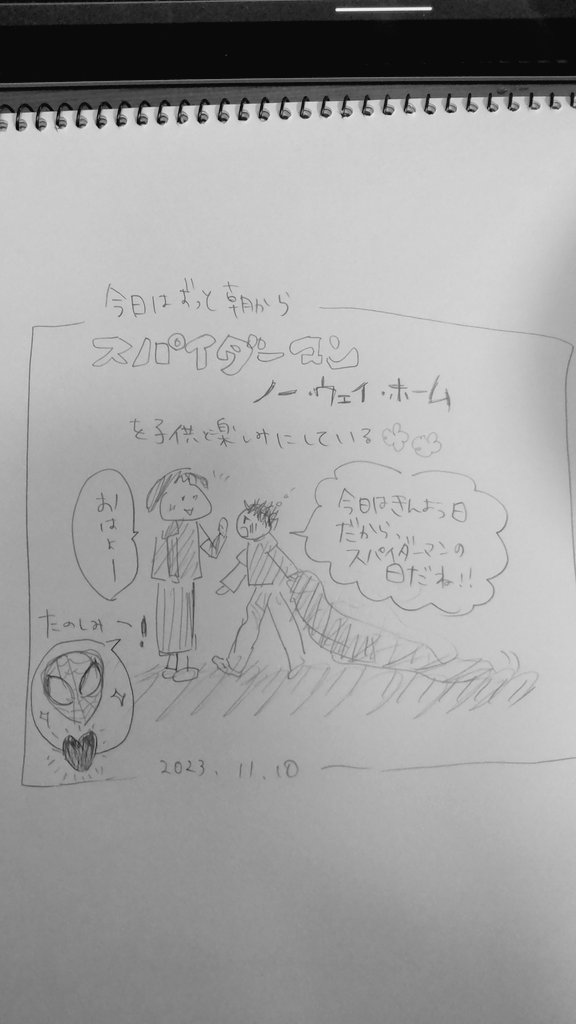 今日はずっと朝から
スパイダーマン
ノー・ウェイ・ホーム
を子供と楽しみにしている
おはよー
今日はきんよう日
だから、
スパイダーマンの
日だね!!
たのしみー!
2023.11.10